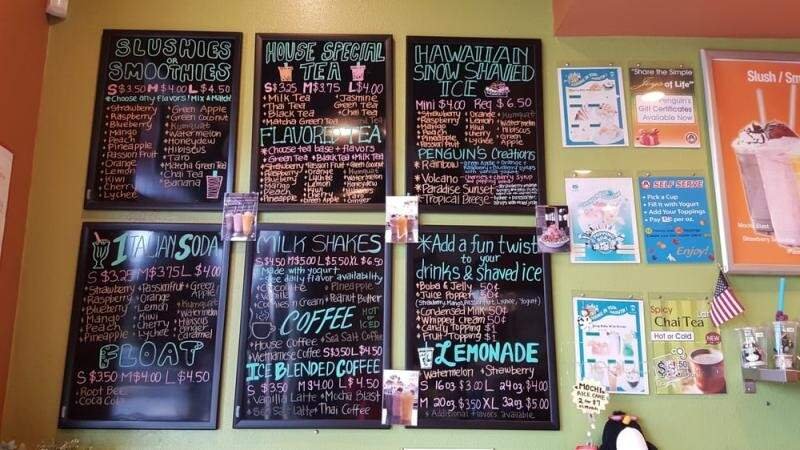 SLUSHIES
OR
SMOOTHIES
S $3.50 M $4.00 L $4.50
*Choose any Flavors! Mix & Match!
Strawberry
Raspberry
Blueberry
Mango
Peach
Pineapple
Passion Fruit
Orange
Lemon
Kiwi
Cherry
Lychee
Green Apple
Green Coconut
Kumquat
Watermelon
Honeydew
Hibiscus
Taro
Matcha Green Tea
Chai Tea
Banana
HOUSE SPECIAL
TEA
S $3.25 M $3.75 L $4.00
Milk Tea
Thai Tea
Black Tea
Matcha Green Tea
Jasmine
Green Tea
Chai Tea
FLAVORED TEA
*Choose tea base + flavors
Green Tea Black Tea Milk Tea
Strawberry
Raspberry
Blueberry
Mango
Peach
Pineapple
Passion Fruit
Orange
Lychee
Lemon
Kiwi
Cherry
Green Apple
Kumquat
Watermelon
Honeydew
Ginger
HAWAIIAN
SNOW SHAVED
ICE
Mini $4.00 Reg $6.50
Strawberry
Raspberry
Blueberry
Mango
Peach
Pineapple
Passion Fruit
Orange
Lemon
Kiwi
Cherry
Lychee
Kumquat
Watermelon
Hibiscus
Green Apple
PENGUIN'S Creations
Rainbow
Volcano
Paradise Sunset
Tropical Breeze
ITALIAN SODA
S $3.25 M $3.75 L $4.00
Strawberry
Raspberry
Blueberry
Mango
Peach
Pineapple
Passion Fruit
Orange
Lemon
Kiwi
Cherry
Lychee
Green Apple
Kumquat
Watermelon
Hibiscus
Ginger
Caramel
FLOAT
S $3.50 M $4.00 L $4.50
Root Beer
Coca Cola
MILK SHAKES
S $4.50 M $5.00 L $5.50 XL $6.50
Made with yogurt
See daily flavor availability
Chocolate
Vanilla
Cookies n Cream
Pineapple
Peanut Butter
COFFEE
HOT
or
ICED
House Coffee
Sea Salt Coffee
Vietnamese Coffee S $3.50 L $4.50
ICE BLENDED COFFEE
S $3.50 M $4.00 L $4.50
Vanilla Latte
Mocha Blast
Sea Salt Latte
Thai Coffee
*Add a fun twist
to your
drinks & shaved ice
Boba & Jelly 50¢
Juice Poppers 50¢
(Strawberry, Mango, Passion Fruit, Lychee, Yogurt)
Condensed Milk 50¢
Whipped Cream 50¢
Candy Topping $1
Fruit Topping $1
LEMONADE
Watermelon
Strawberry
S 16oz $3.00 L 24oz $4.00
M 20oz $3.50 XL 32oz $5.00
*Additional flavors available
"Share the Simple
Joys of Life"
Penguin's
Gift Certificates
Available Now
SELF SERVE
• Pick a Cup
• Fill it with Yogurt
• Add Your Toppings
• Pay per oz.
Enjoy!
Spicy
Chai Tea
Hot or Cold
NEW
MOCHI
RICE CAKE
2 for $7
Slush / Sm
Mocha Blast
Strawberry